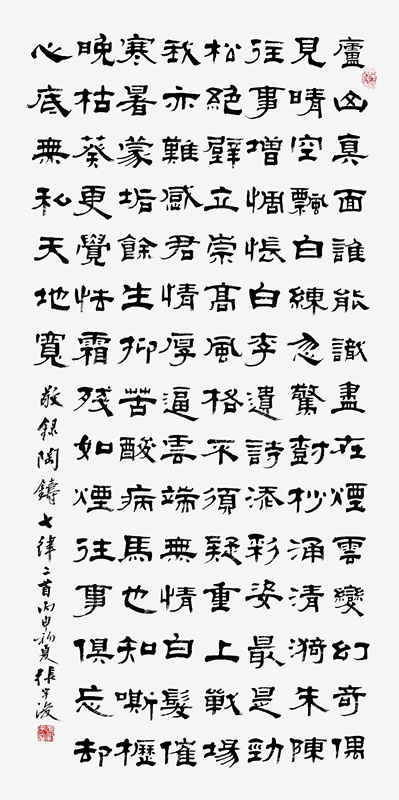 廬山真面誰能識盡在煙雲變幻奇偶
見晴空飄白練忽驚樹杪涌清漪朱陳
往事增惆悵白李遺詩添彩姿最是勁
松絕壁立崇高風格不須疑重上戰場
我亦難感君情厚逼雲端無情白髮催
寒暑蒙垢餘生抑苦酸病馬也知嘶櫪
晚枯葵更覺怯霜殘如煙往事俱忘却
心底無私天地寬 敬錄陶鑄七律二首丙申初夏張